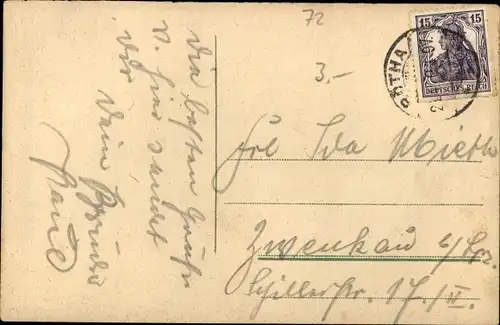 72
3.-
15 15
DEUTSCHES REICH
Die besten Grüße
v. hier sendet
Dir
Dein Bruder
Paul
Frl Ida Mieth
Zwenkau b/Lpz.
Schillerstr. 17./II.